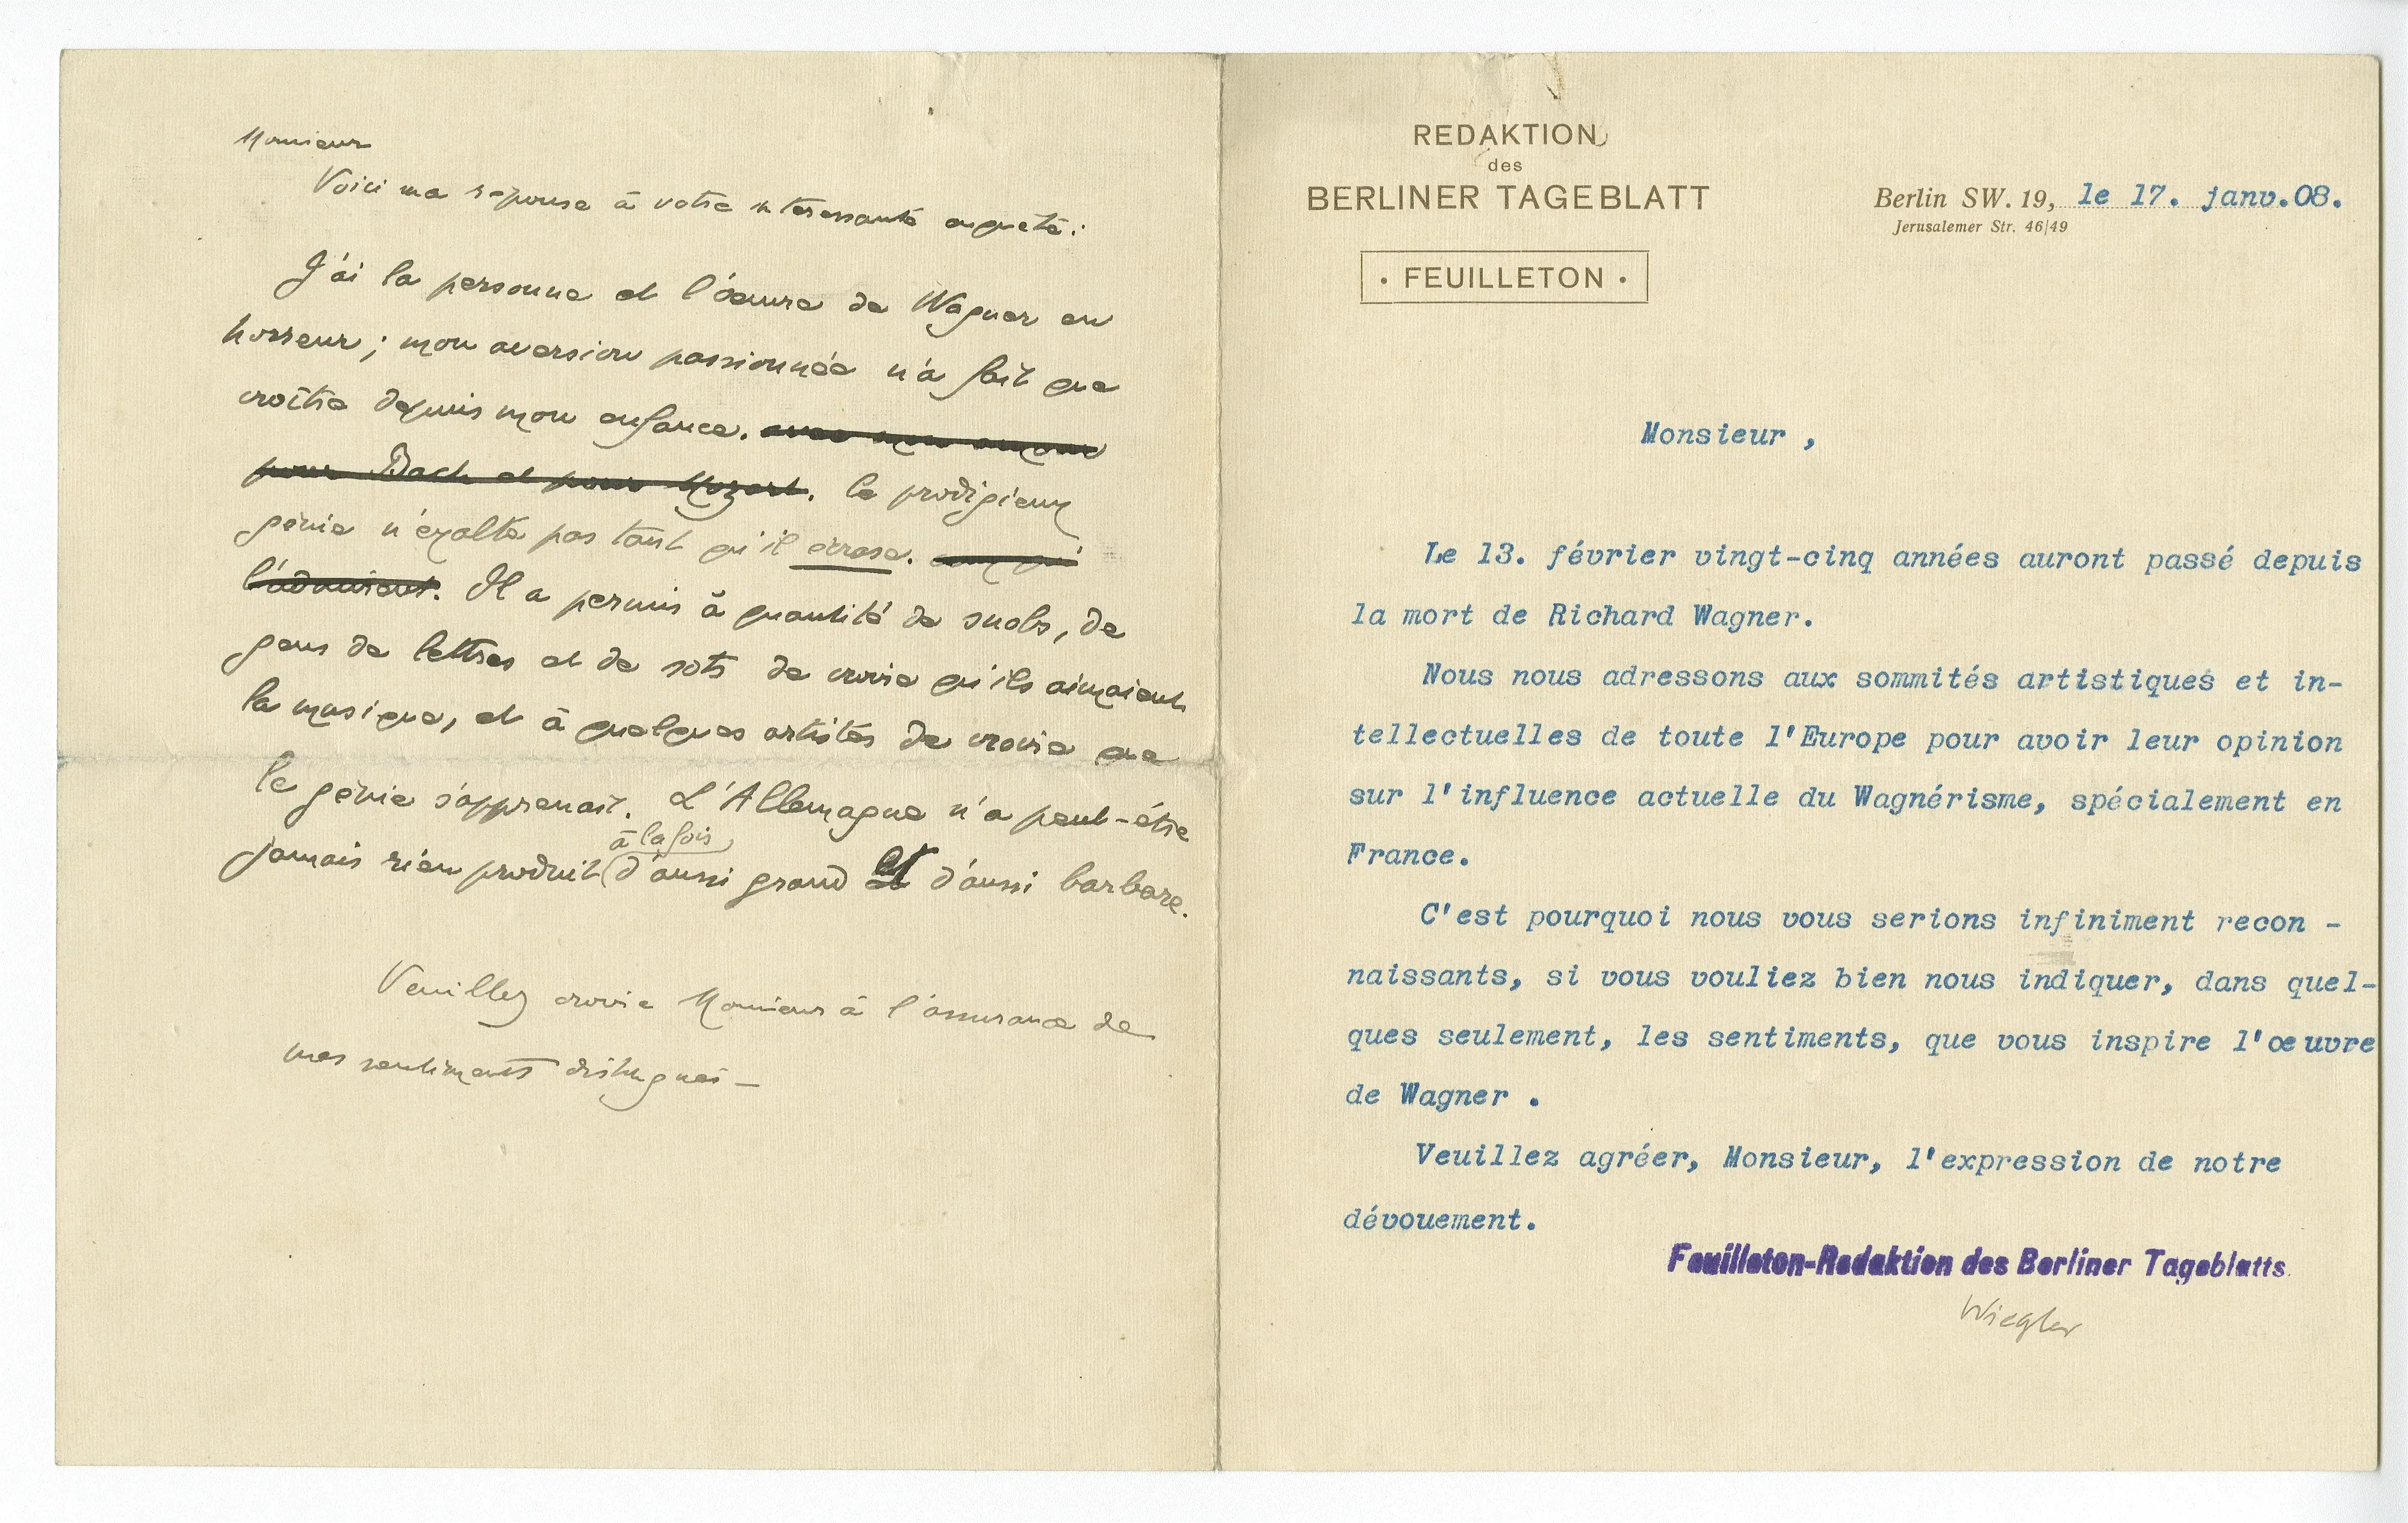 Monsieur
Voici ma réponse à votre intéressante enquête :
J'ai la personne et l'œuvre de Wagner en
horreur ; mon aversion passionnée n'a fait que
croître depuis mon enfance. avec mon amour
pour Bach et pour Mozart. Ce prodigieux
génie n'exalte pas tant qu'il écrase. ceux qui
l'admirent. Il a permis à quantité de snobs, de
gens de lettres et de sots de croire qu'ils aimaient
la musique, et à quelques artistes de croire que
le génie s'apprenait. L'Allemagne n'a peut-être
à la fois
jamais rien produit d'aussi grand et d'aussi barbare.
Veuillez croire Monsieur à l'assurance de
mes sentiments distingués —
REDAKTION
des
BERLINER TAGEBLATT
· FEUILLETON ·
Berlin SW. 19, le 17. janv.08.
Jerusalemer Str. 46|49
Monsieur ,
Le 13. février vingt-cinq années auront passé depuis
la mort de Richard Wagner.
Nous nous adressons aux sommités artistiques et in-
tellectuelles de toute l'Europe pour avoir leur opinion
sur l'influence actuelle du Wagnérisme, spécialement en
France.
C'est pourquoi nous vous serions infiniment recon -
naissants, si vous vouliez bien nous indiquer, dans quel-
ques seulement, les sentiments, que vous inspire l'œuvre
de Wagner .
Veuillez agréer, Monsieur, l'expression de notre
dévouement.
Feuilleton-Redaktion des Berliner Tageblatts.
Wiegler